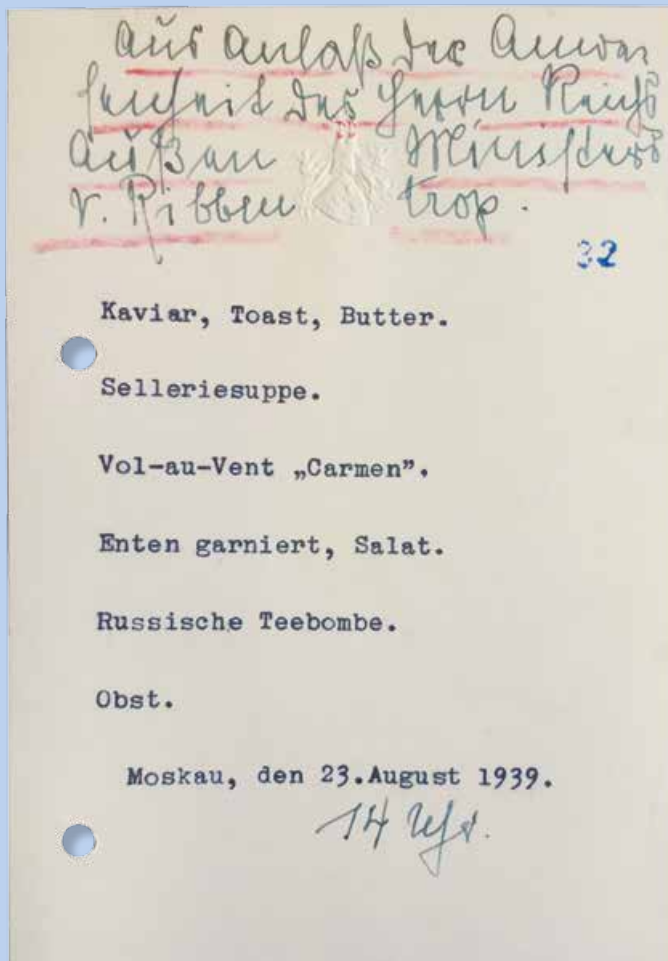 Aus Anlaß der Anwe
senheit des Herrn Reichs
Außen Ministers
v. Ribben trop.
32
Kaviar, Toast, Butter.
Selleriesuppe.
Vol-au-Vent „Carmen”.
Enten garniert, Salat.
Russische Teebombe.
Obst.
Moskau, den 23.August 1939.
14 Uhr.